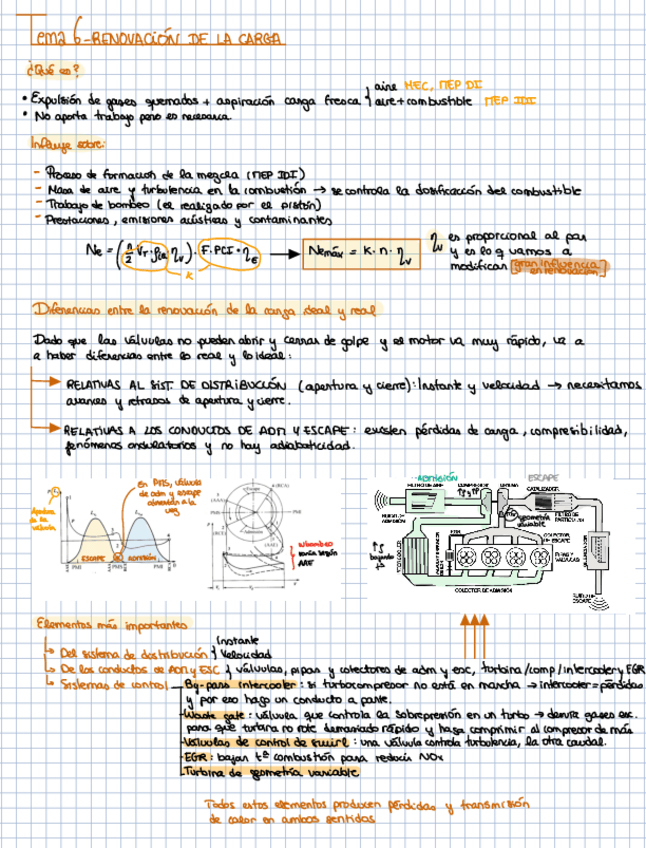 Tema 6-RENOVACIÓN DE LA CARGA
¿Qué es?
• Expulsión de gases quemados + aspiración carga fresca { aire MEC, MEP DI
aire+combustible MEP IDI
• No aporta trabajo pero es necesaria.
Influye sobre:
- Proceso de formación de la mezcla (MEP IDI)
- Masa de aire y turbulencia en la combustión → se controla la dosificación del combustible
- Trabajo de bombeo (el realizado por el pistón)
- Prestaciones, emisiones acústicas y contaminantes
Ne = (n/2 V_T · ρ · η_v) · F · PCI · η_e → Nemáx = K · n · η_v
K
η_v es proporcional al par
y es lo q vamos a
modificar [gran influencia
en renovación]
Diferencias entre la renovación de la carga ideal y real
Dado que las válvulas no pueden abrir y cerrar de golpe y el motor va muy rápido, va a
a haber diferencias entre lo real y lo ideal:
→ RELATIVAS AL SIST. DE DISTRIBUCIÓN (apertura y cierre): Instante y velocidad → necesitamos
avances y retrasos de apertura y cierre.
→ RELATIVAS A LOS CONDUCTOS DE ADM Y ESCAPE: existen pérdidas de carga, compresibilidad,
fenómenos ondulatorios y no hay adiabaticidad.
En PMS, válvula
de adm y escape
abiertas a la
vez
Apertura
de la
válvula
ESCAPE
ADMISIÓN
PMI
PMS
PMI
Wbombeo
varía según
AAE
ADMISIÓN
ESCAPE
FILTRO DE AIRE
COMPRESOR
TURBINA
CATALIZADOR
geometría
variable
RUIDO DE
ADMISIÓN
FILTRO DE
PARTICULAS
INTERCOOLER
EGR
COLECTOR
DE ESCAPE
PIPAS Y
VALVULAS
SILENCIADOR
bajando
COLECTOR DE ADMISIÓN
RUIDO DE
ESCAPE
Elementos más importantes
→ Del sistema de distribución { Instante
Velocidad
→ De los conductos de ADM y ESC { válvulas, pipas y colectores de adm y esc, turbina/comp/intercooler y EGR
→ Sistemas de control - By-pass intercooler: si turbocompresor no está en marcha → intercooler = pérdidas
y por eso hago un conducto a parte.
- Waste gate: válvula que controla la sobrepresión en un turbo → deriva gases esc.
para que turbina no rote demasiado rápido y haga comprimir al compresor de más
- Válvulas de control de swirl: una válvula controla turbulencia, la otra caudal.
- EGR: bajan tª combustión para reducir NOx
- Turbina de geometría variable
Todos estos elementos producen pérdidas y transmisión
de calor en ambos sentidos